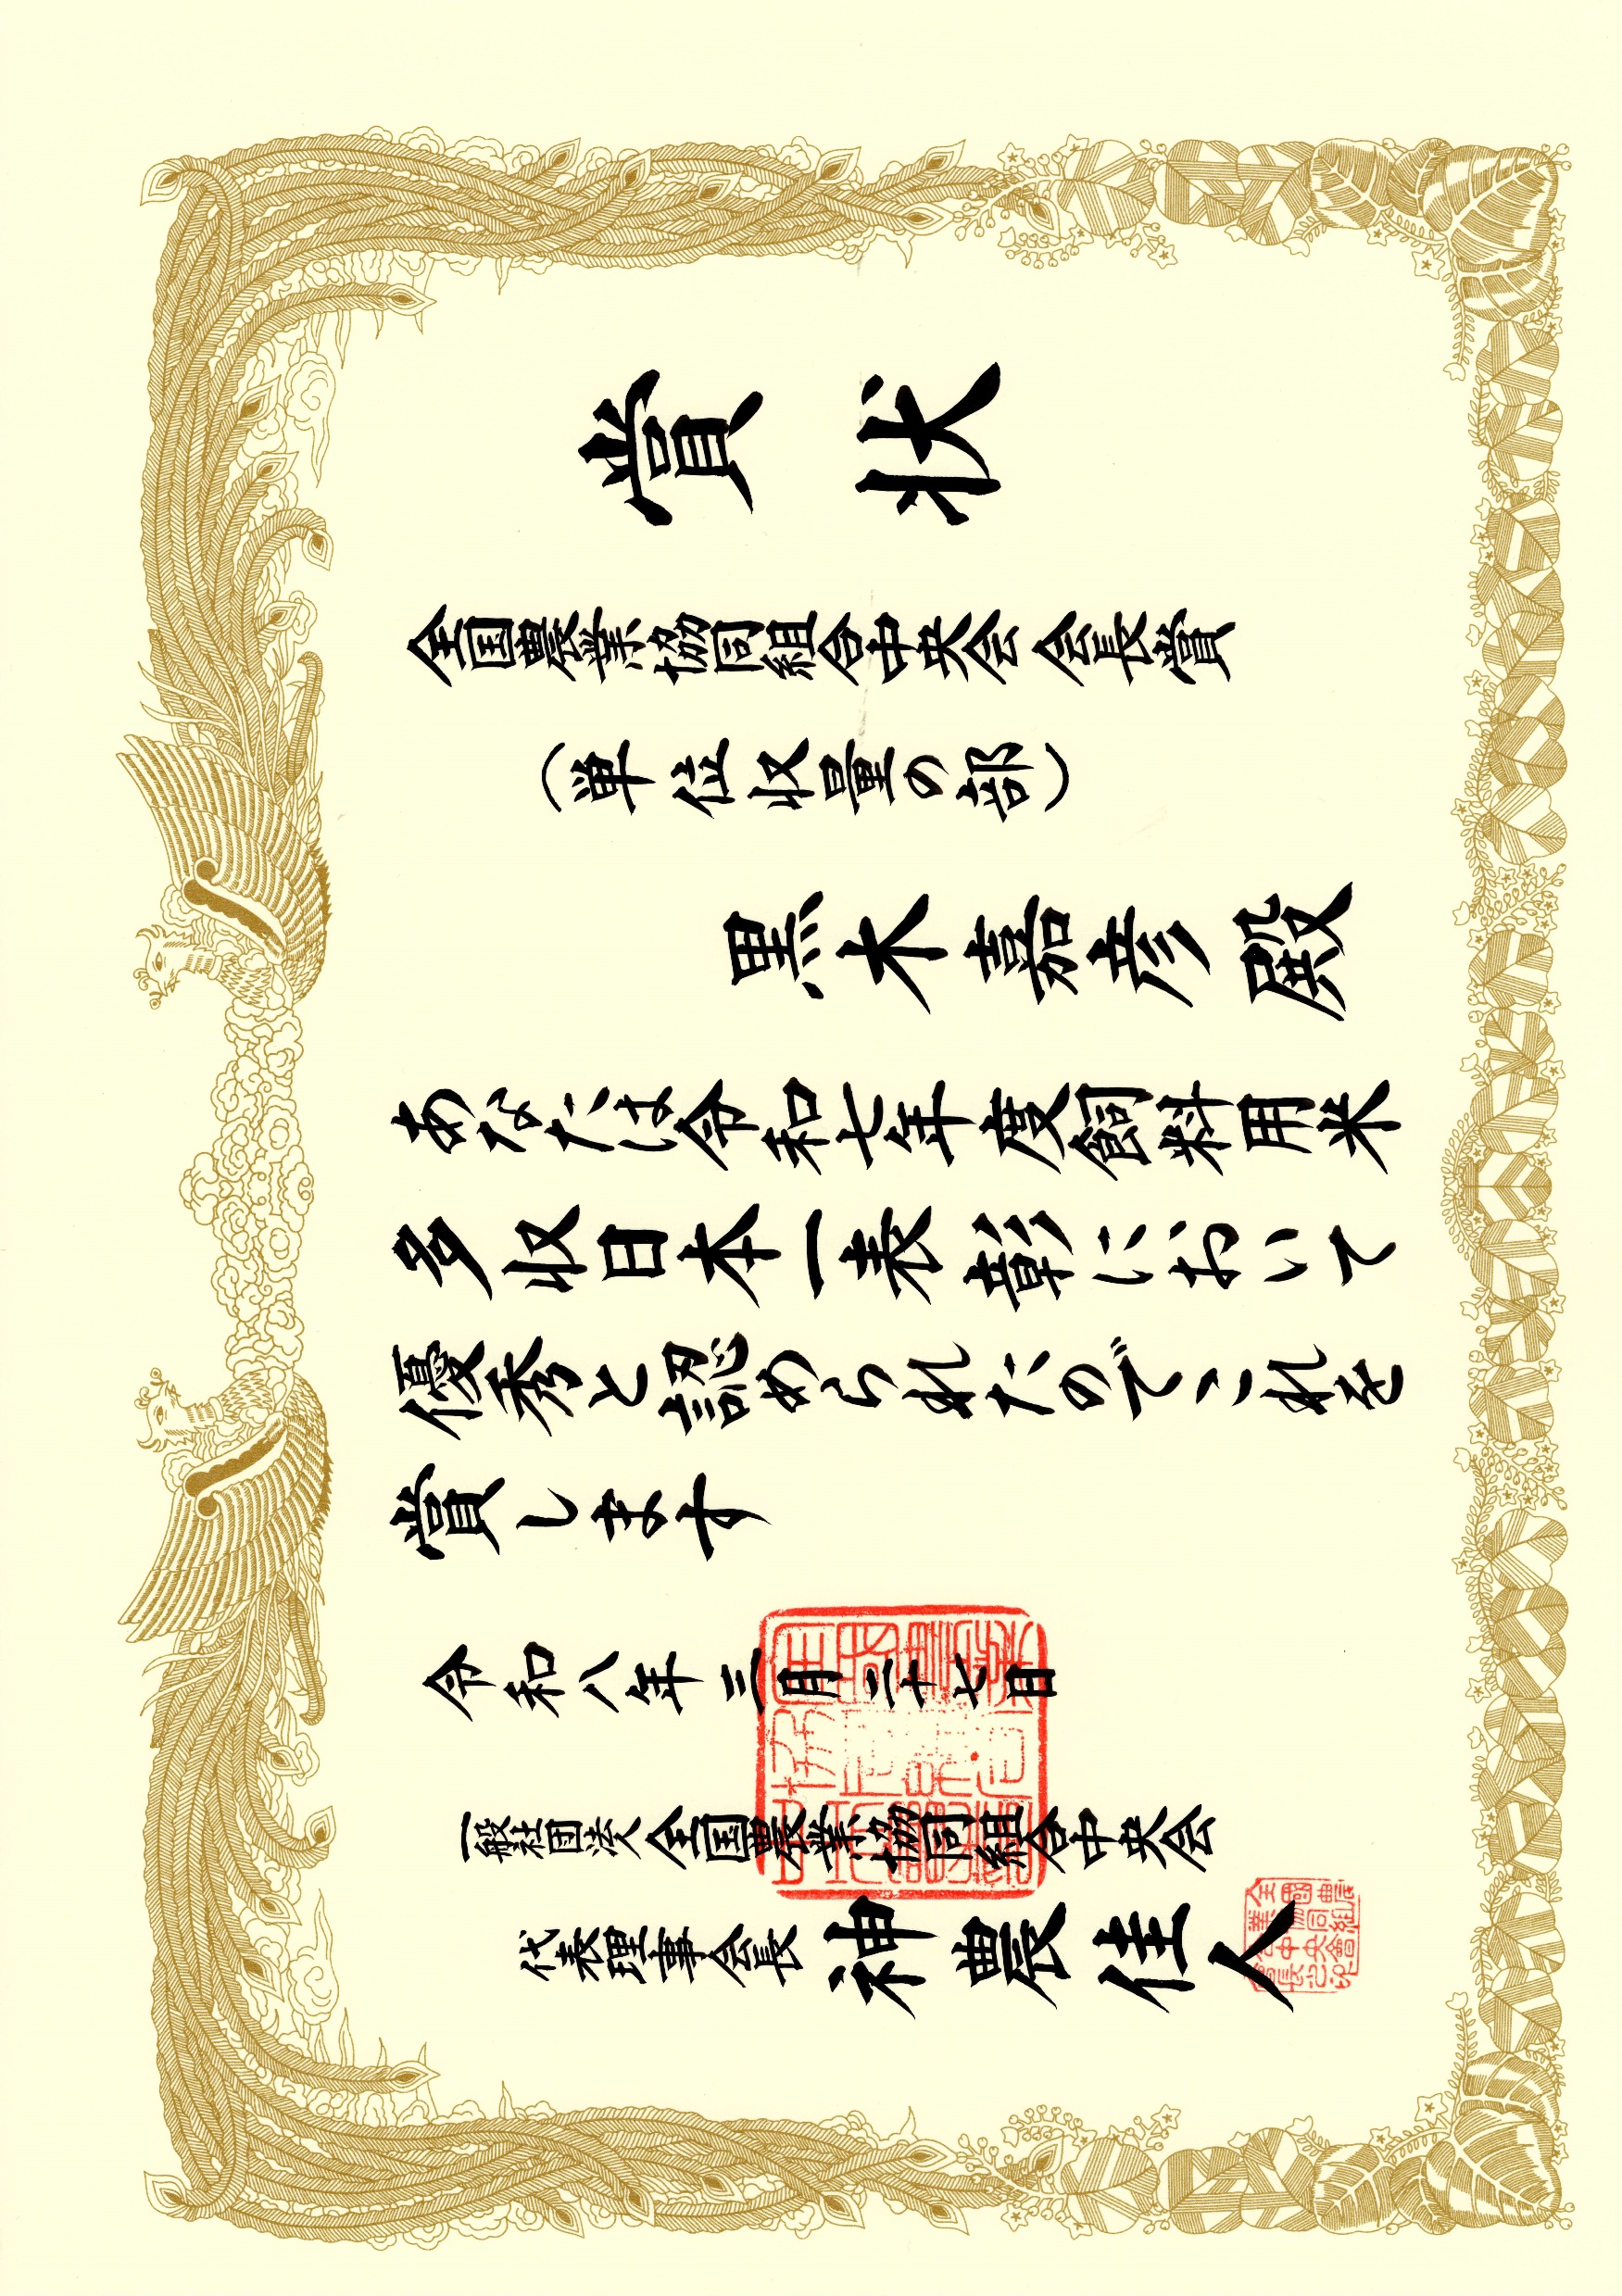 賞状
全国農業協同組合中央会会長賞
（単位収量の部）
黒木嘉彦殿
あなたは令和七年度飼料用米
多収日本一表彰において
優秀と認められたのでこれを
賞します
令和八年三月二十七日
一般社団法人全国農業協同組合中央会
代表理事会長 神農佳人